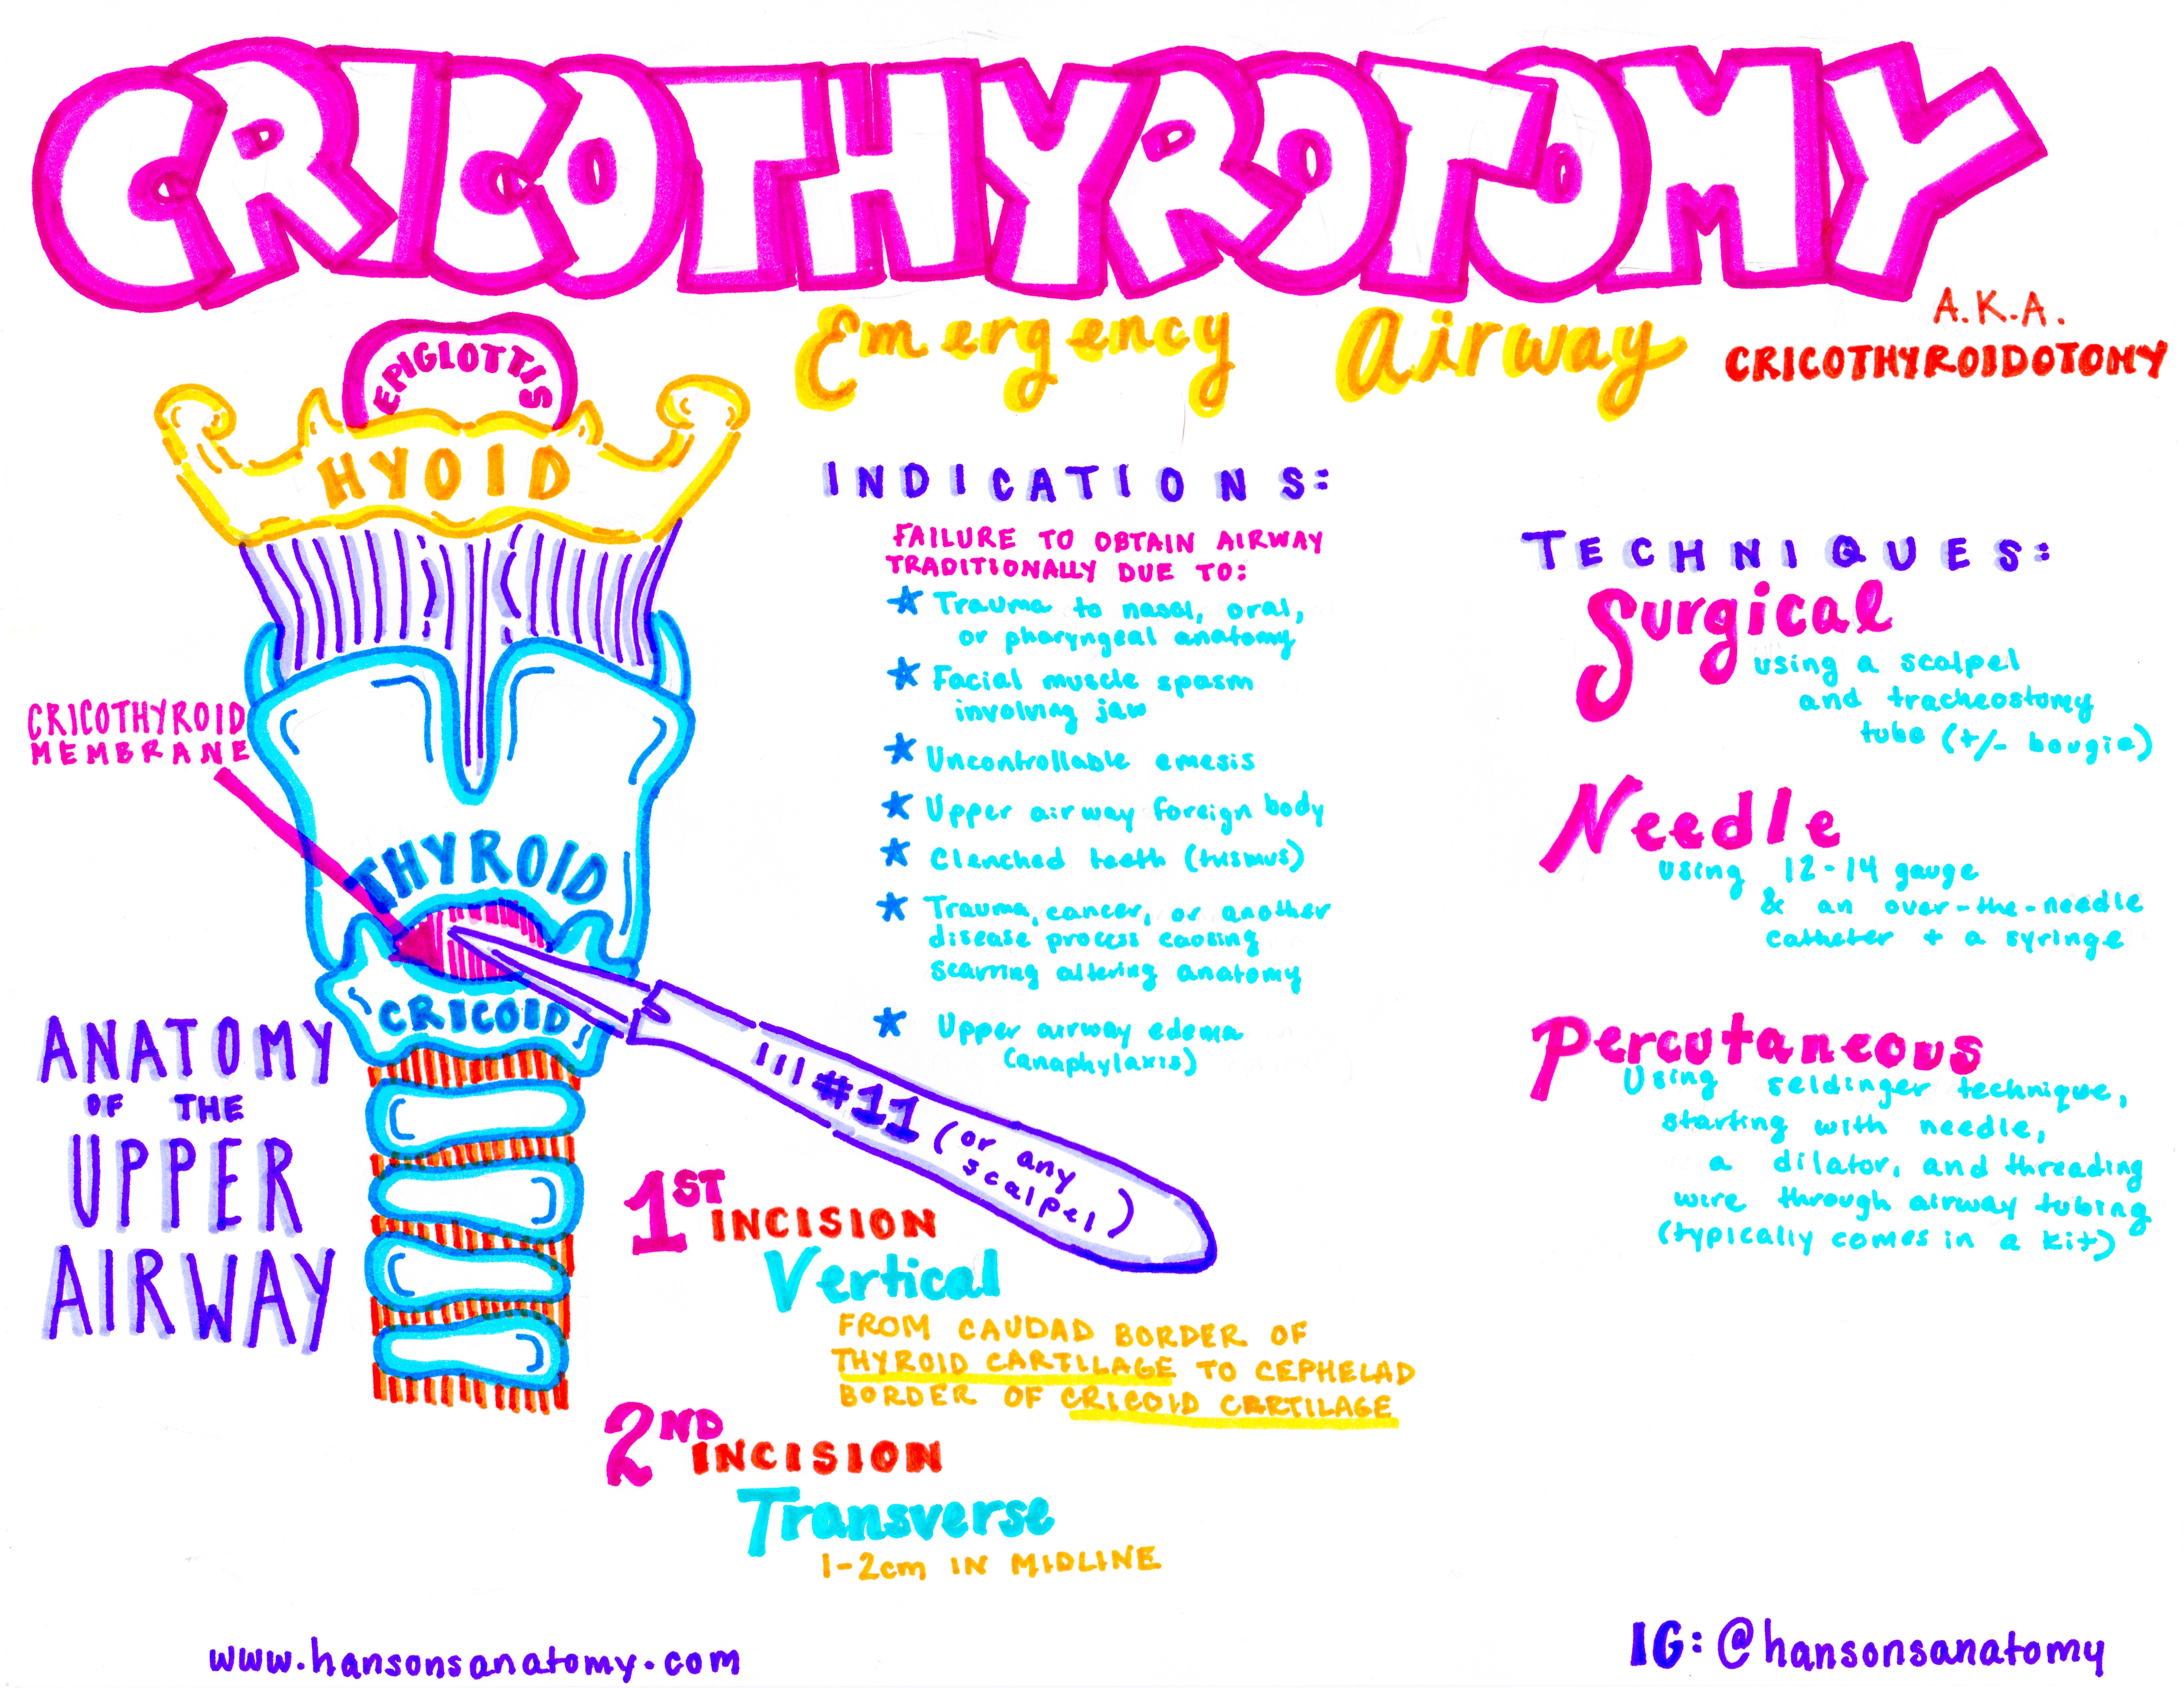 CRICOTHYROTOMY
Emergency Airway
A.K.A.
CRICOTHYROIDOTOMY
EPIGLOTTIS
HYOID
CRICOTHYROID
MEMBRANE
THYROID
CRICOID
ANATOMY
OF THE
UPPER
AIRWAY
INDICATIONS:
FAILURE TO OBTAIN AIRWAY
TRADITIONALLY DUE TO:
★ Trauma to nasal, oral,
or pharyngeal anatomy
★ Facial muscle spasm
involving jaw
★ Uncontrollable emesis
★ Upper airway foreign body
★ Clenched teeth (trismus)
★ Trauma, cancer, or another
disease process causing
scarring altering anatomy
★ Upper airway edema
(anaphylaxis)
#11 (or any
scalpel)
1ST
INCISION
Vertical
FROM CAUDAD BORDER OF
THYROID CARTILAGE TO CEPHELAD
BORDER OF CRICOID CARTILAGE
2ND
INCISION
Transverse
1-2cm IN MIDLINE
TECHNIQUES:
Surgical
using a scalpel
and tracheostomy
tube (+/- bougie)
Needle
using 12-14 gauge
& an over-the-needle
catheter + a syringe
Percutaneous
Using seldinger technique,
starting with needle,
a dilator, and threading
wire through airway tubing
(typically comes in a kit)
www.hansonsanatomy.com
IG: @hansonsanatomy